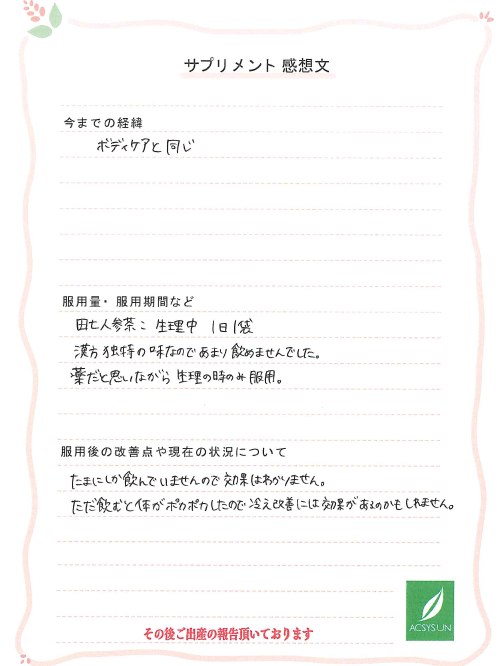 サプリメント 感想文
今までの経緯
ボディケアと同じ
服用量・服用期間など
田七人参茶: 生理中 1日1袋
漢方独特の味なのであまり飲めませんでした。
薬だと思いながら生理の時のみ服用。
服用後の改善点や現在の状況について
たまにしか飲んでいませんので効果はわかりません。
ただ飲むと体がポカポカしたので冷え改善には効果があるのかもしれません。
ACSYSUN
その後ご出産の報告頂いております